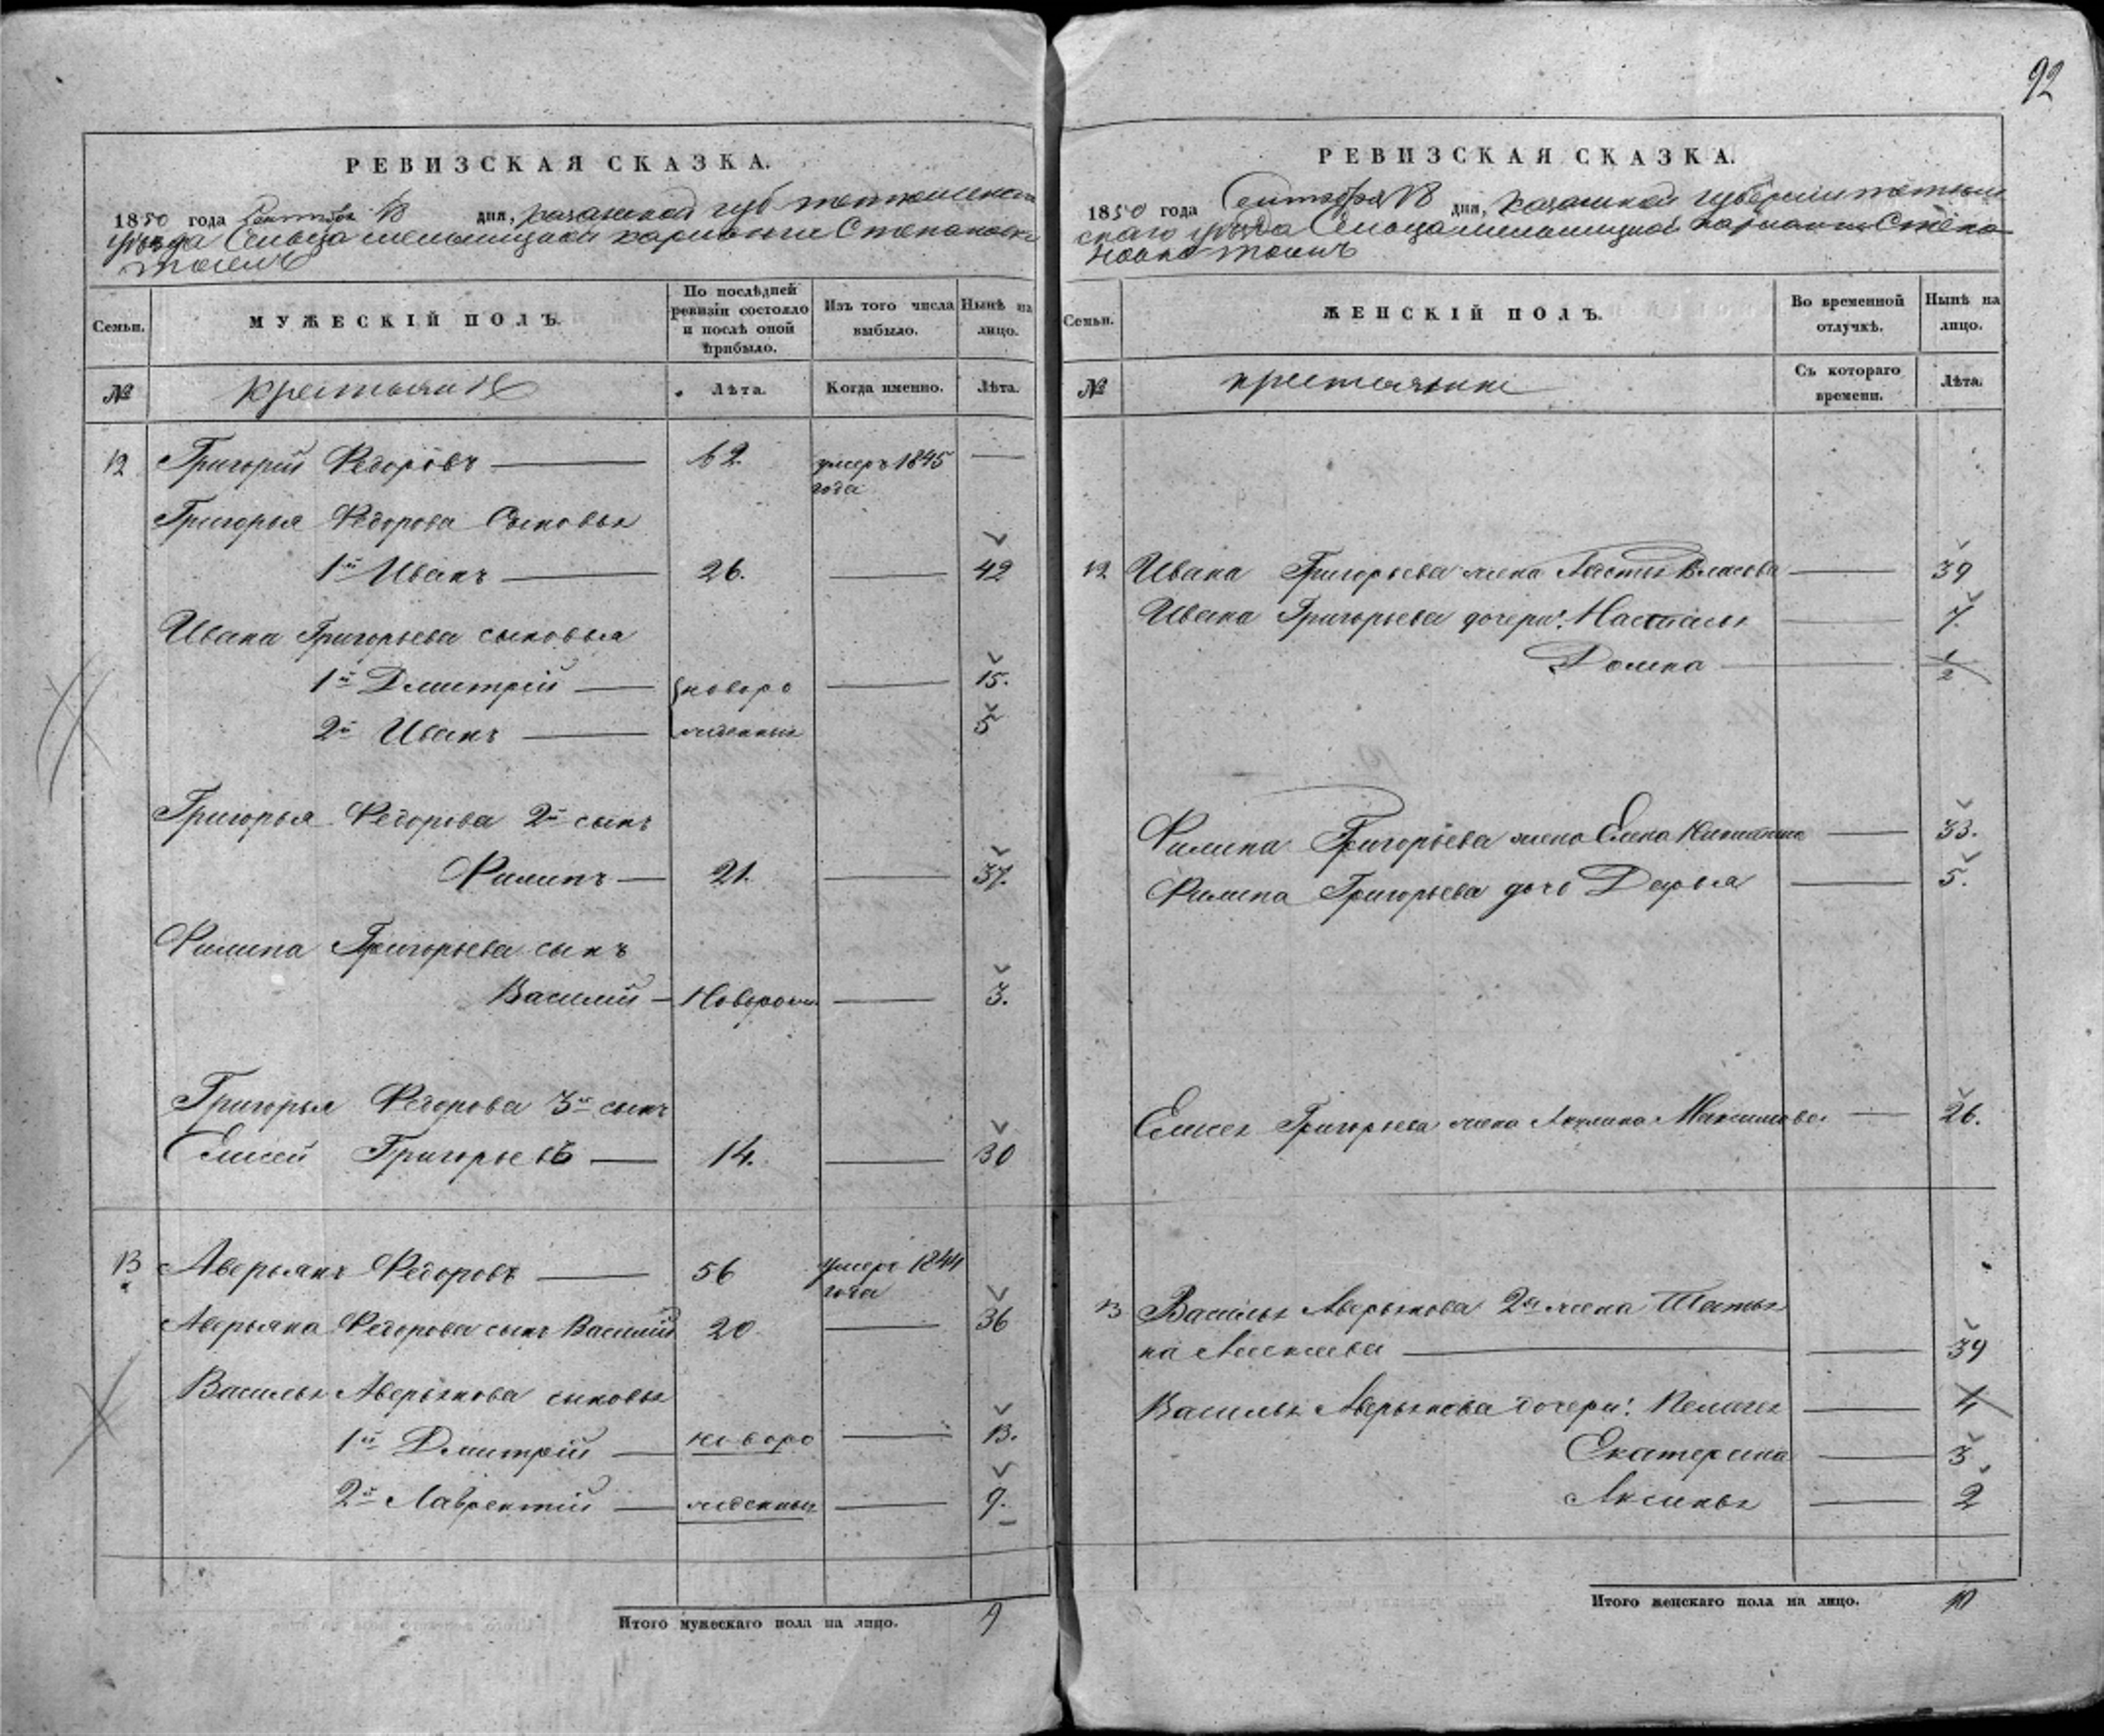 92
РЕВИЗСКАЯ СКАЗКА.
1850 года Сентября 18 дня, Казанской губ Тетюшскаго
уѣзда Сельца Мельницкой
тожъ
Семьи.
МУЖЕСКІЙ ПОЛЪ.
По послѣдней ревизіи состояло и послѣ оной прибыло.
Изъ того числа выбыло.
Нынѣ на лицо.
№
Крестьяне
Лѣта.
Когда именно.
Лѣта.
12 Григорій Федоровъ — 62. умеръ 1845 —
года
Григорья Федорова Сыновья
1й Иванъ — 26. — 42
Ивана Григорьева сыновья
1й Дмитрій — новоро — 15.
2й Иванъ — жденныя 5
Григорья Федорова 2й сынъ
Филипъ — 21. — 37.
Филипа Григорьева сынъ
Василій — Новорож — 3.
Григорья Федорова 3й сынъ
Елисей Григорьевъ — 14. — 30
13 Аверьянъ Федоровъ — 56 умеръ 1844
года
Аверьяна Федорова сынъ Василій 20 — 36
Василья Аверьянова сыновья
1й Дмитрій — новоро — 13.
2й Лаврентій — жденныя — 9.
Итого мужескаго пола на лицо. 9
РЕВИЗСКАЯ СКАЗКА.
1850 года Сентября 18 дня, Казанской губерніи Тетюш
скаго уѣзда Сельца Мельницкой Степа
новка тожъ
Семьи.
ЖЕНСКІЙ ПОЛЪ.
Во временной отлучкѣ.
Нынѣ на лицо.
№
крестьянки
Съ котораго времени.
Лѣта.
12 Ивана Григорьева жена Власова — 39
Ивана Григорьева дочери: Настасья — 7.
Домна — 1/2
Филипа Григорьева жена Елена Никитина — 33.
Филипа Григорьева дочь Дарья — 5.
Елисея Григорьева жена Акулина Максимова — 26.
13 Василья Аверьянова 2я жена Татья
на Алексѣева — 39
Василья Аверьянова дочери: Пелагея — 4
Екатерина — 3
Аксинья — 2
Итого женскаго пола на лицо. 10